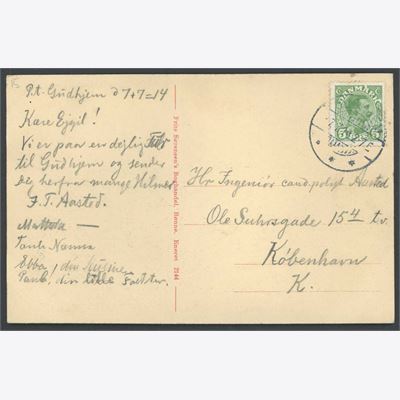 P.t. Gudhjem d 7+7=14
Kære Ejgil!
Vi er paa en dejlig Tur
til Gudhjem og sender
Dig herfra mange Hilsner
F. T. Aasted.
Mathilde —
Tante Nanna
Ebba, din Kusine
Paul, din lille Fætter.
Fritz Sørensen's Boghandel, Rønne. Eneret 2144
DANMARK
5 5
Hr Ingeniør cand.polyt Aasted
Ole Suhrsgade 15 4 tv.
København
K.